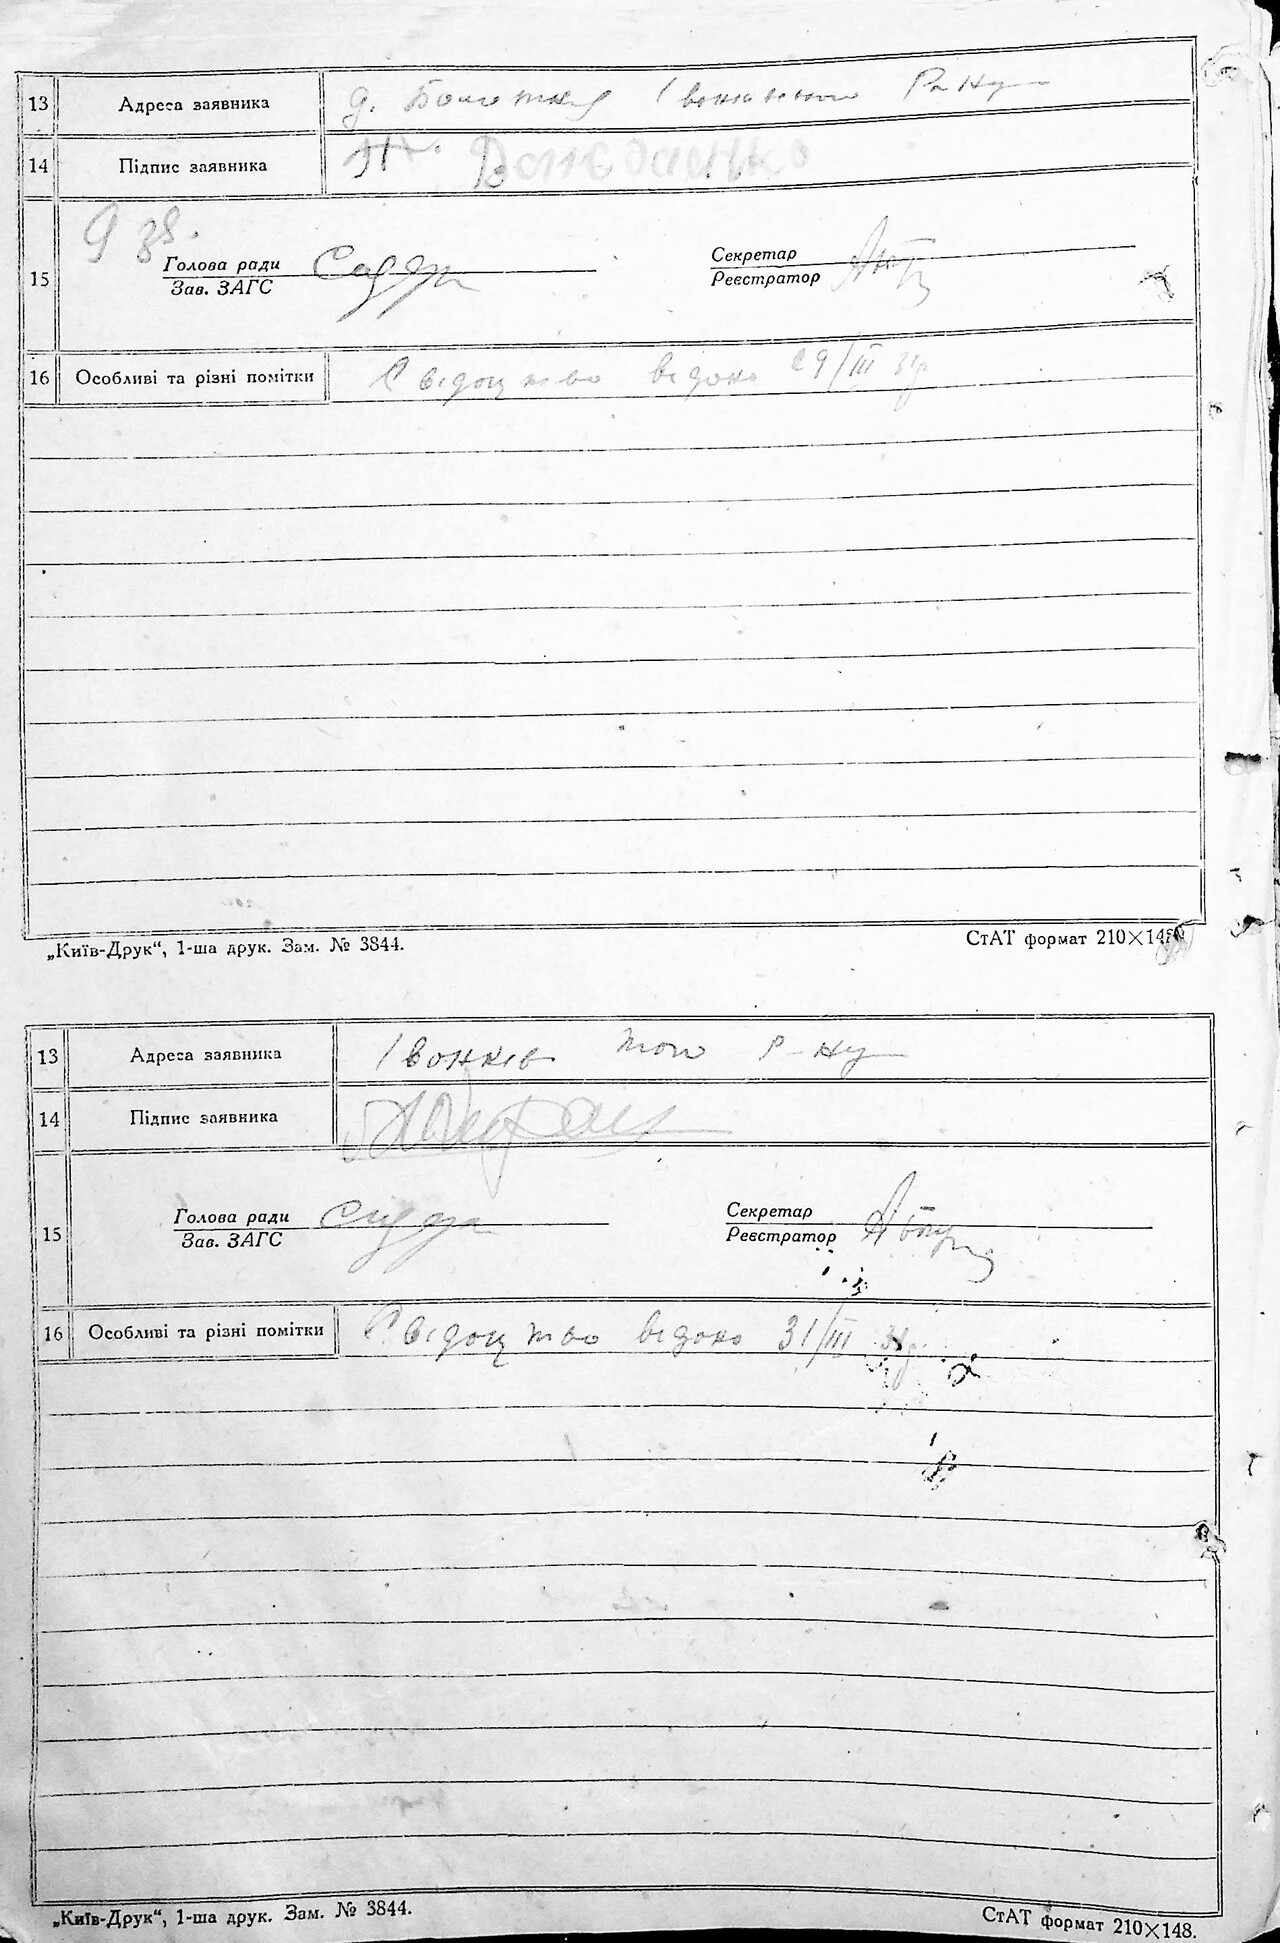 13 Адреса заявника Іванківського Р-ну
14 Підпис заявника
15 Голова ради Секретар
Зав. ЗАГС Реєстратор
16 Особливі та різні помітки Свідоцтво видано 29/III 31р
„Київ-Друк“, 1-ша друк. Зам. № 3844. СтАТ формат 210×148.
13 Адреса заявника Іванків того р-ну
14 Підпис заявника
15 Голова ради Секретар
Зав. ЗАГС Реєстратор
16 Особливі та різні помітки Свідоцтво видано 31/III 31р.
„Київ-Друк“, 1-ша друк. Зам. № 3844. СтАТ формат 210×148.